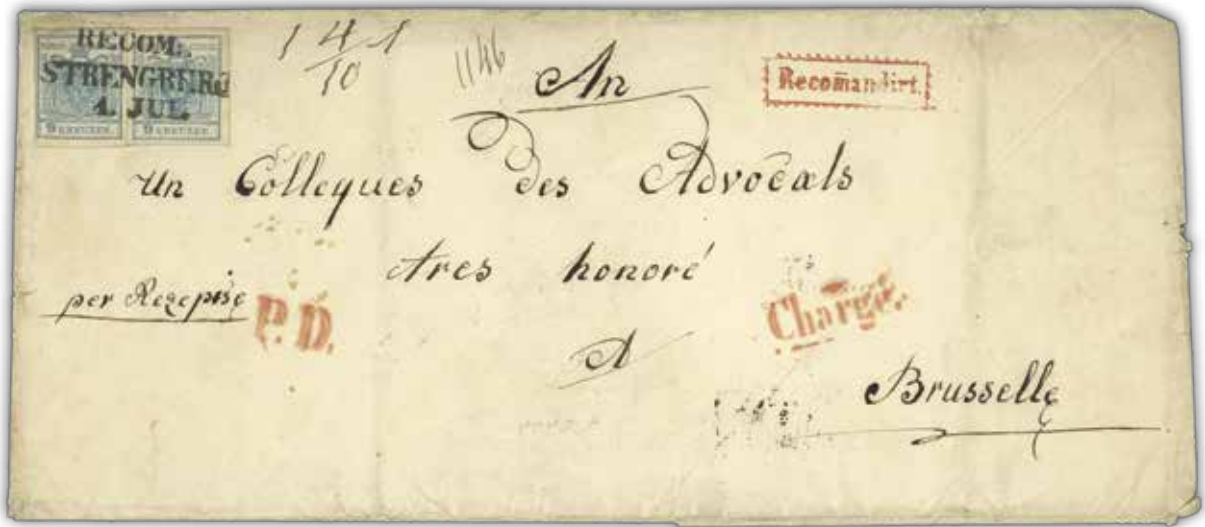 RECOM:
STRENGBERG
1. JUL.
9 KREUZER 9 KREUZER
1 4 1
10
1146
An
Recomandirt.
Un Colleques des Advocals
tres honoré
per Rezepiße
P.D.
Chargé.
A
Brusselle